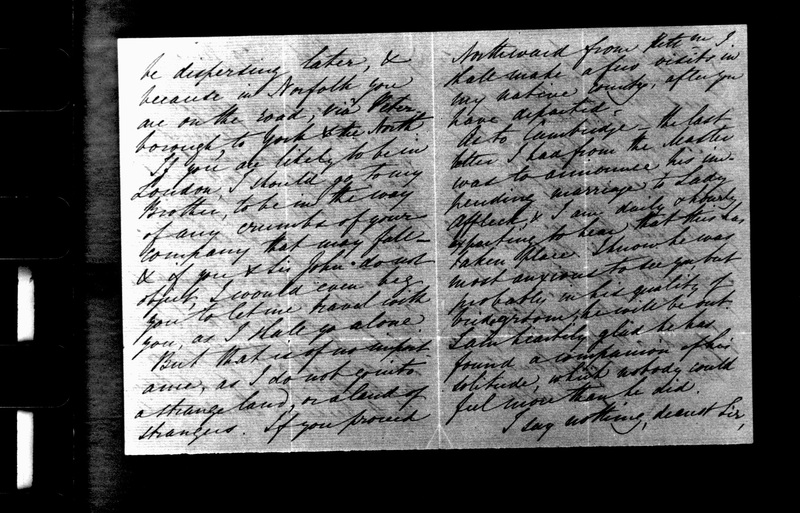 be dispersing later, &
because in Norfolk you
are on the road, via Peter-
borough, to York & the North.
If you are likely to be in
London I should go to my
Brother, to be in the way
of any crumbs of your
company that may fall –
& if you & Sir John do not
object, I would even beg
you to let me travel with
you, as I shall go alone.
But that is of no import
ance, as I do not go into
a strange land, or a land of
strangers. If you proceed
Northward from I
shall make a few visits in
my native county, after you
have departed.
As to Cambridge – the last
letter I had from the Master
was to announce his im-
pending marriage to Lady
Affleck, & I am daily & hourly
expecting to hear that this has
taken place. I know he was
most anxious to see you but
probably in his quality of
bridegroom, he will be out.
I am heartily glad he has
found a companion of his
solitude, which nobody could
feel more than he did.
I say nothing, dearest Sir,